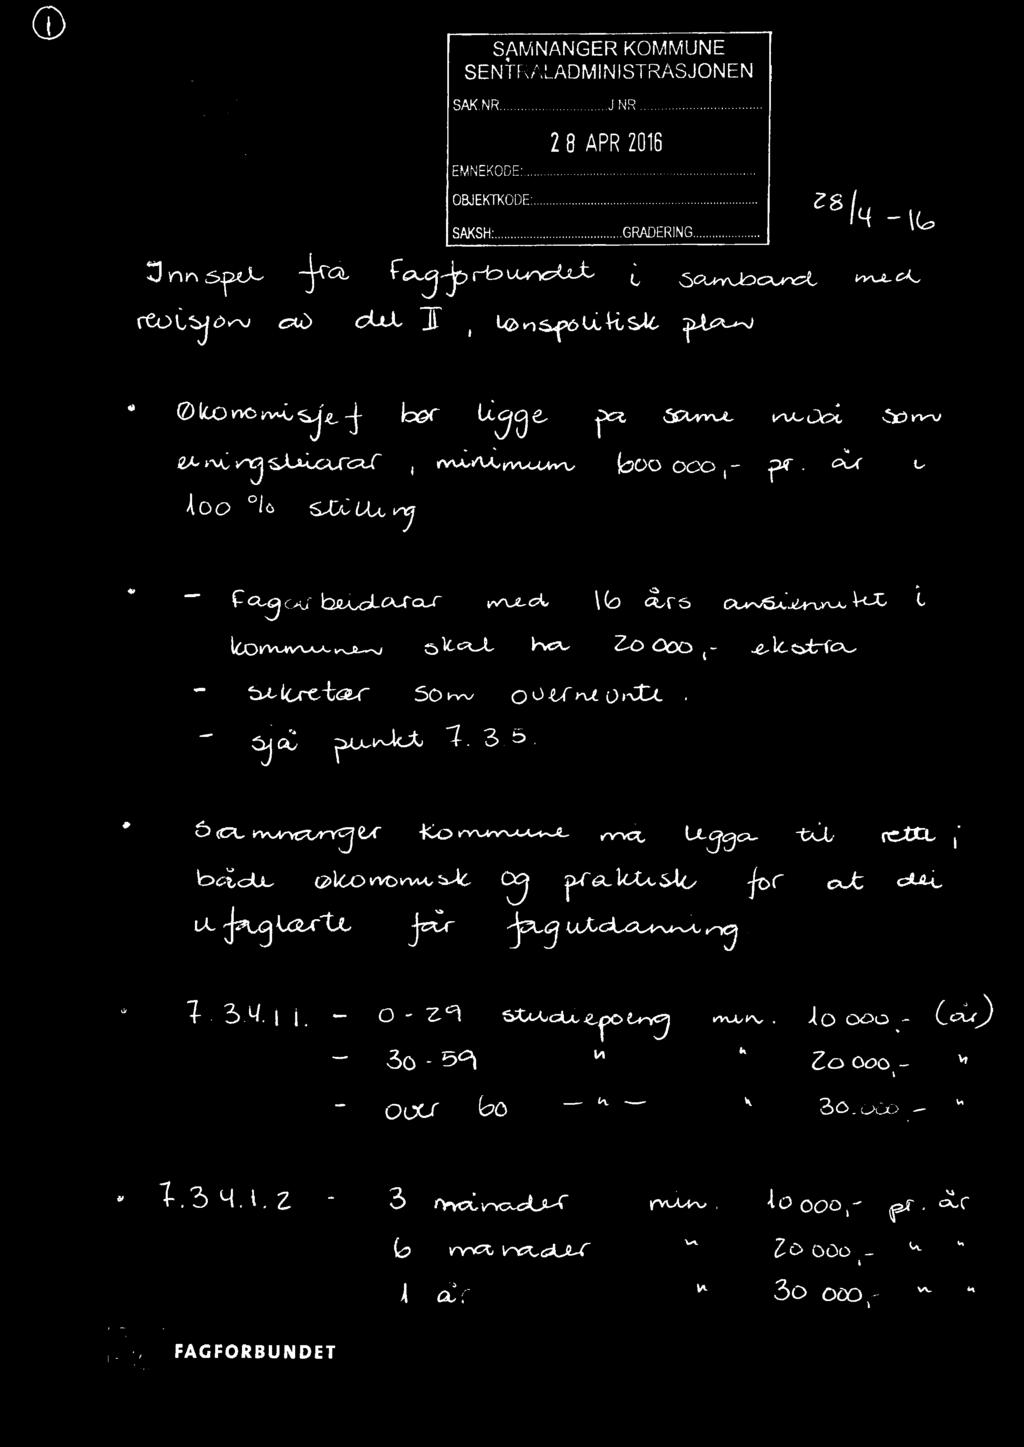 1
SAMNANGER KOMMUNE
SENTRALADMINISTRASJONEN
SAK NR.....................J NR.........................
28 APR 2016
EMNEKODE:.............................................
OBJEKTKODE:............................................
SAKSH:.........................GRADERING.............
28/4 - 16
Innspel frå Fagforbundet i samband med
revisjon av del II , lønspolitisk plan
• Økonomisjef bør ligge på same nivå som
einingsleiarar , minimum 600 000,- pr. år i
100 % stilling
• - Fagarbeidarar med 16 års ansiennitet i
kommunen skal ha 20 000,- ekstra
- sekretær som overnevnte .
- sjå punkt 7. 3 5.
• Samnanger kommune må legga til rette ;
både økonomisk og praktisk for at dei
ufaglærte får fagutdanning
• 7. 3.4. 1 1. - 0 - 29 studiepoeng min. 10 000,- (år)
- 30 - 59 " " 20 000,- "
- over 60 — " — " 30.000,- "
• 7.3 4.1. 2 - 3 månader min. 10 000,- pr. år
6 månader " 20 000,- " "
1 år " 30 000,- " "
FAGFORBUNDET